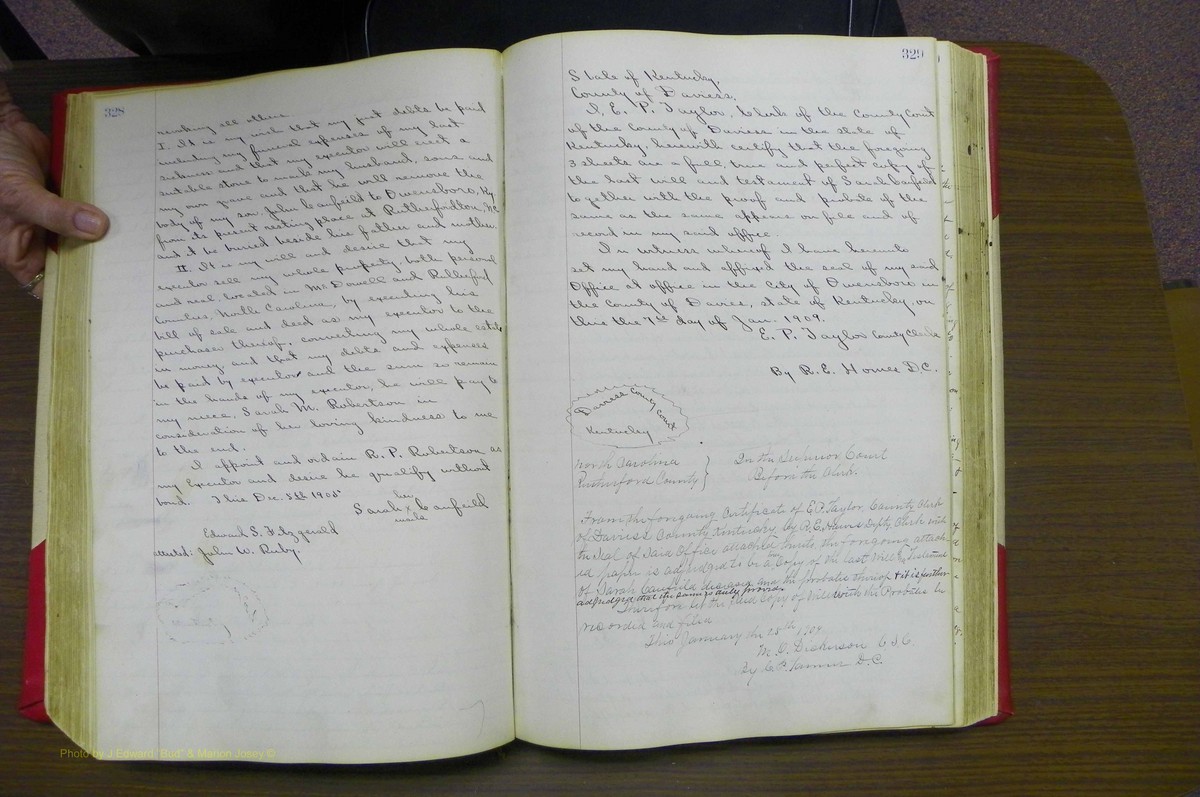 328
revoking all others.
I. It is my wish that my just debts be paid
including my funeral expenses of my last
sickness and that my executor will erect a
suitable stone to mark my husband, sons and
my own grave and that he will remove the
body of my son, John Canfeild to Owensboro, Ky.
from its present resting place at Rutherfordton, NC
and it be buried beside his father and mother.
II. It is my will and desire that my
executor sell my whole property, both personal
and real, located in McDowell and Rutherford
Counties, North Carolina, by executing his
bill of sale and deed as my executor to the
purchaser thereof, converting my whole estate
in money and that my debts and expenses
be paid by executor and the sum so remain
in the hands of my executor, he will pay to
my niece, Sarah M. Robertson in
consideration of her loving kindness to me
to the end.
I appoint and ordain R. P. Robertson as
my Executor and desire he qualify without
bond. This Dec. 5th 1905
her
Sarah x Canfeild
mark
Edward S. Fitzgerald
attested: John W. Ruby.
329
State of Kentucky,
County of Daviess,
I, E. P. Taylor, Clerk of the County Court
of the County of Daviess in the state of
Kentucky, herewith certify that the foregoing
3 sheets are a full, true and perfect copy of
the last will and testament of Sarah Canfield
together with the proof and probate of the
same as the same appears on file and of
record in my said office.
In witness whereof I have hereunto
set my hand and affixed the seal of my said
Office at office in the City of Owensboro in
the County of Daviess, state of Kentucky, on
this the 7th day of Jan. 1909.
E. P. Taylor County Clerk
By R. E. Homes D.C.
Daviess County Court
Kentucky
North Carolina
Rutherford County }
In the Superior Court
Before the Clerk.
From the foregoing Certificate of E.P. Taylor, County Clerk
of Daviess County, Kentucky by R.E. Homes Depty Clerk with
the Seal of said office attached thereto, the foregoing attach-
ed paper is adjudged to be a true Copy of the last Will & Testament
of Sarah Canfeild deceased and the probate thereof & it is further
adjudged that the same is duly proven.
Therefore let the said Copy of Will with the Probate be
recorded and filed
This January the 25th 1909
M. O. Dickerson C.S.C.
By C. P. Tanner D.C.
Photo by J Edward "Bud" & Marion Josey ©